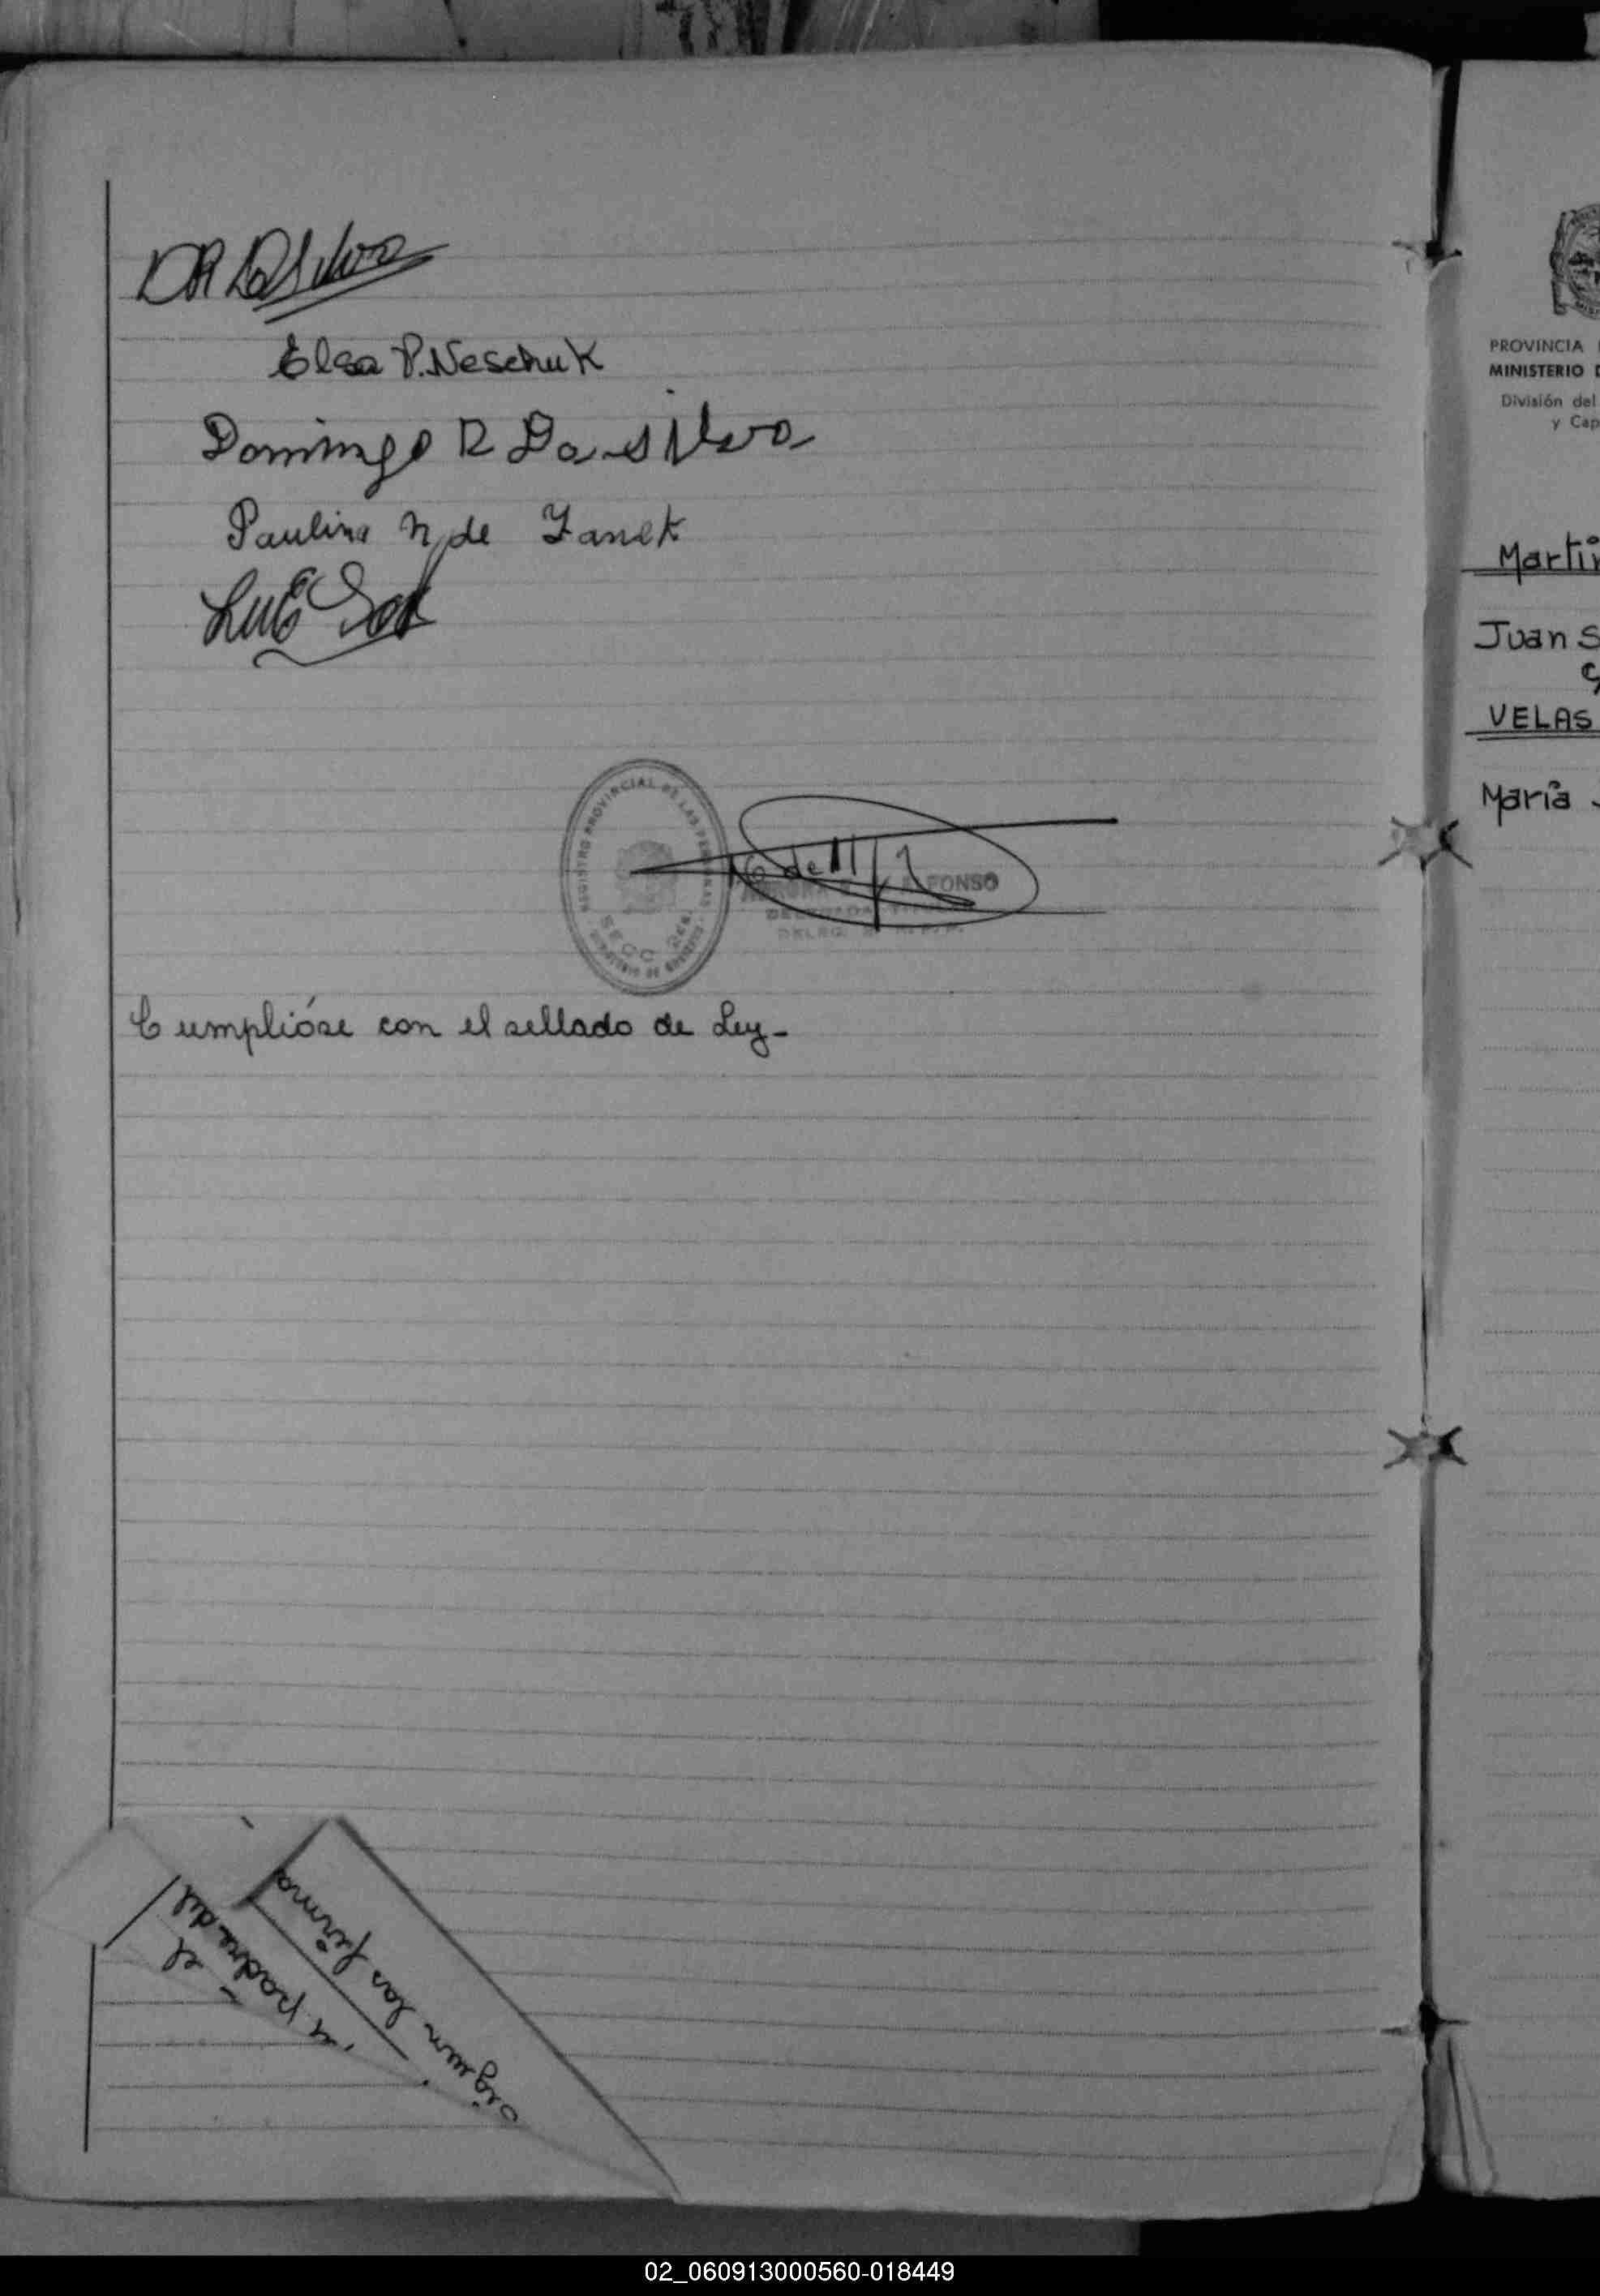 DR DaSilva
Elsa P. Neschuk
Domingo R Da silva
Paulina N. de Fanek
Luis
REGISTRO PROVINCIAL DE LAS PERSONAS
SECC
MINISTERIO DE GOBIERNO
FONSO
DELEGADA TITULAR
DELEG.
Cumplióse con el sellado de Ley-
siguen las firma
padre del
el
PROVINCIA
MINISTERIO D
División del
y Cap
Martin
Juan S
VELAS
María
02_060913000560-018449